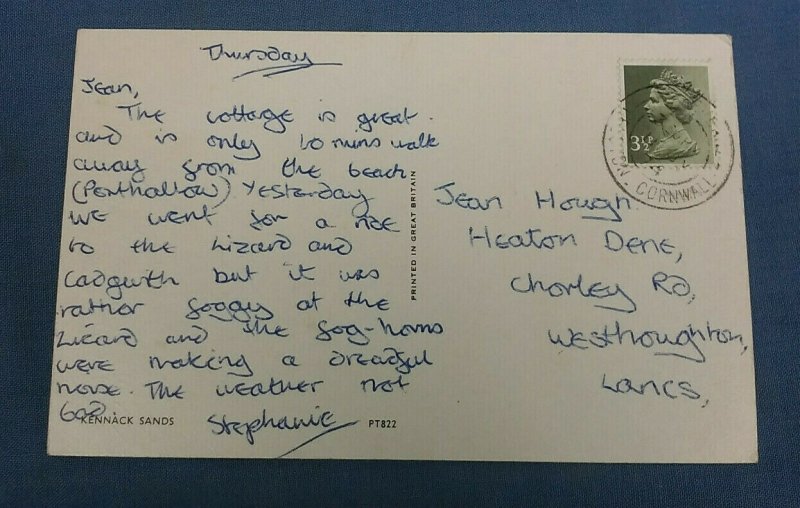 Thursday
Jean,
The cottage is great
and is only 10 mins walk
away from the beach
(Porthallow) Yesterday
we went for a ride
to the Lizard and
Cadgwith but it was
rather foggy at the
Lizard and the fog-horns
were making a dreadful
noise. The weather not
bad.
Stephanie
KENNACK SANDS
PT822
PRINTED IN GREAT BRITAIN
3½P
CORNWALL
Jean Hough
Heaton Dene,
Chorley RD,
Westhoughton,
Lancs,